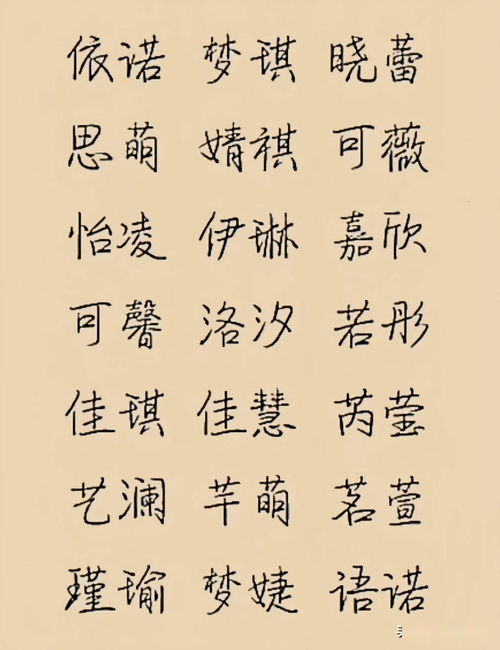 依诺 梦琪 晓蕾
思萌 婧祺 可薇
怡凌 伊琳 嘉欣
可馨 洛汐 若彤
佳琪 佳慧 芮莹
艺澜 芊萌 茗萱
瑾瑜 梦婕 语诺